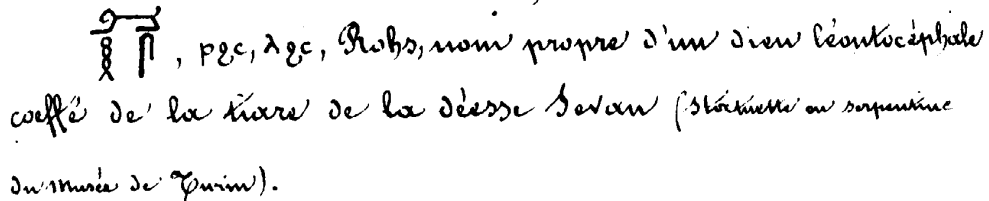 , ⲣϩⲥ, ⲗϩⲥ, Rohs, nom propre d'un dieu léontocéphale
coeffé de la tiare de la déesse Sevan (Statuette en serpentine
du Musée de Turin).